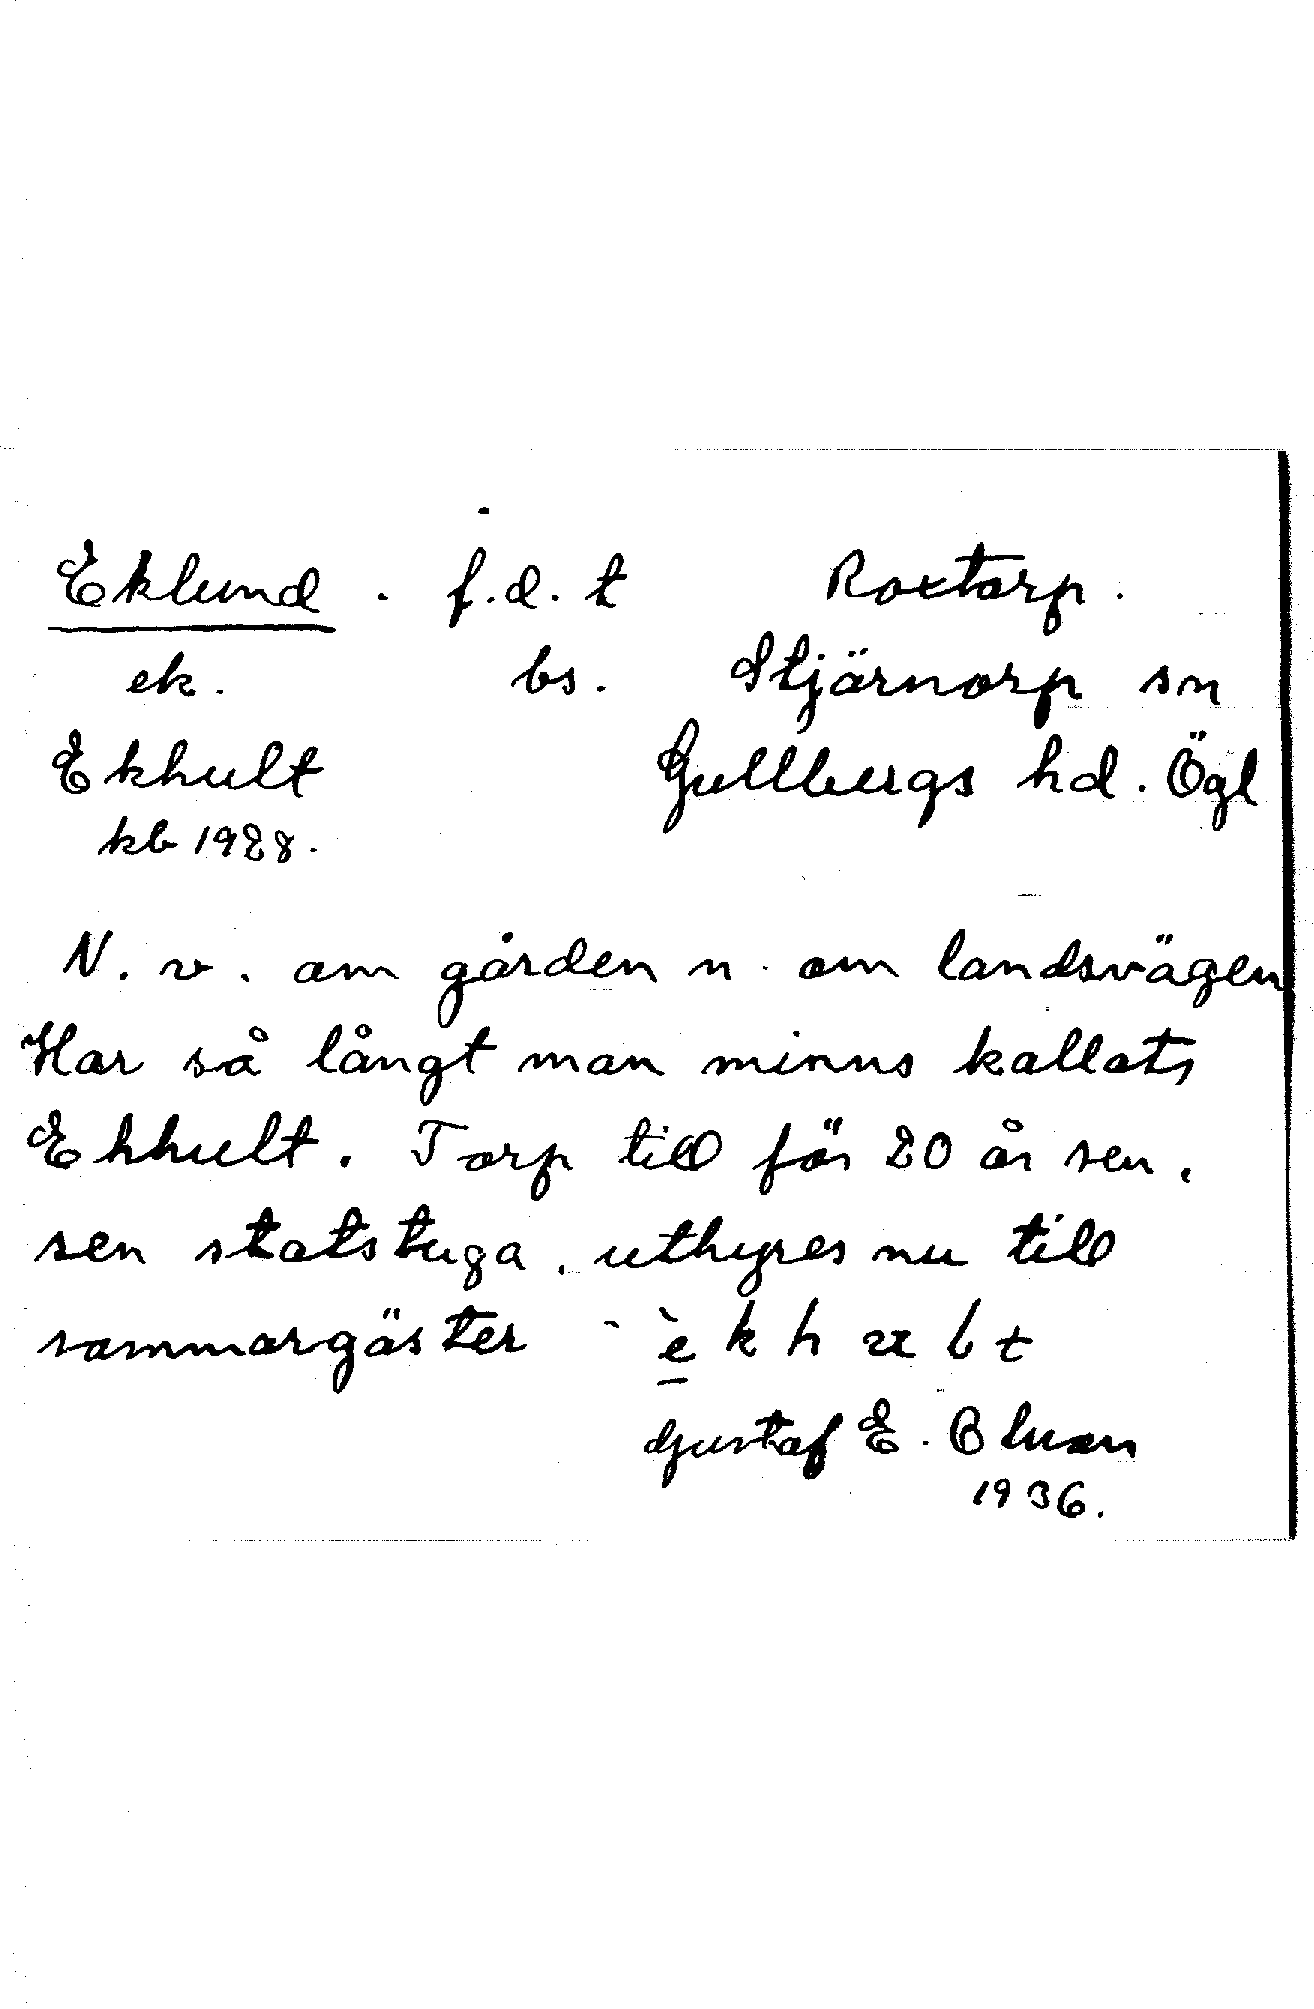 Eklund . f.d. t Roxtorp.
ek. bs. Stjärnorp sn
Ekhult Gullbergs hd. Ögl
kb 1928.
N. v. om gården n. om landsvägen
Har så långt man minns kallats
Ekhult. Torp till för 20 år sen.
sen statstuga. uthyres nu till
sommargäster è k h
Gustaf E.
1936.